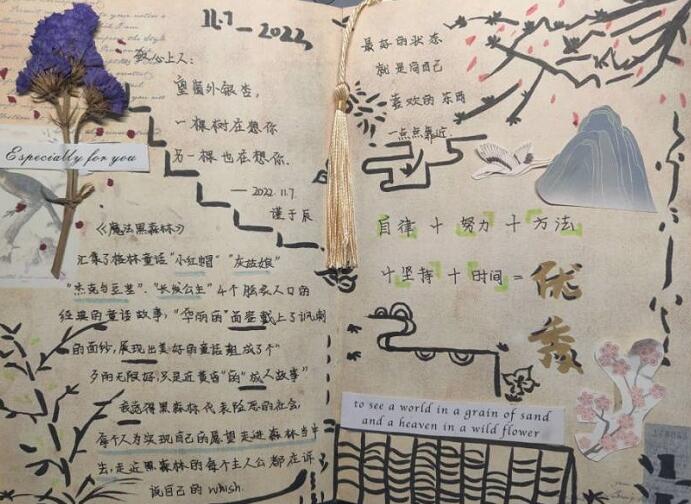 11.7—2022
致心上人：
望窗外银杏，
一棵树在想你
另一棵也在想你.
— 2022.11.7.
谨于辰
Especially for you
《魔法黑森林》
汇集了格林童话"小红帽" "灰姑娘"
"杰克与豆茎"、"长发公主" 4个脍炙人口的
经典的童话故事，"华丽丽"的面容戴上了讽刺
的面纱，展现出美好的童话组成了个"
夕阳无限好，只是近黄昏"的"成人故事"
我觉得黑森林代表险恶的社会，
每个人为实现自己的愿望走进森林当中
去，走近黑森林的每个主人公都在诉
说自己的whish.
最好的状态
就是向自己
喜欢的东西
一点点靠近.
自律 + 努力 + 方法
+ 坚持 + 时间 = 优秀
to see a world in a grain of sand
and a heaven in a wild flower